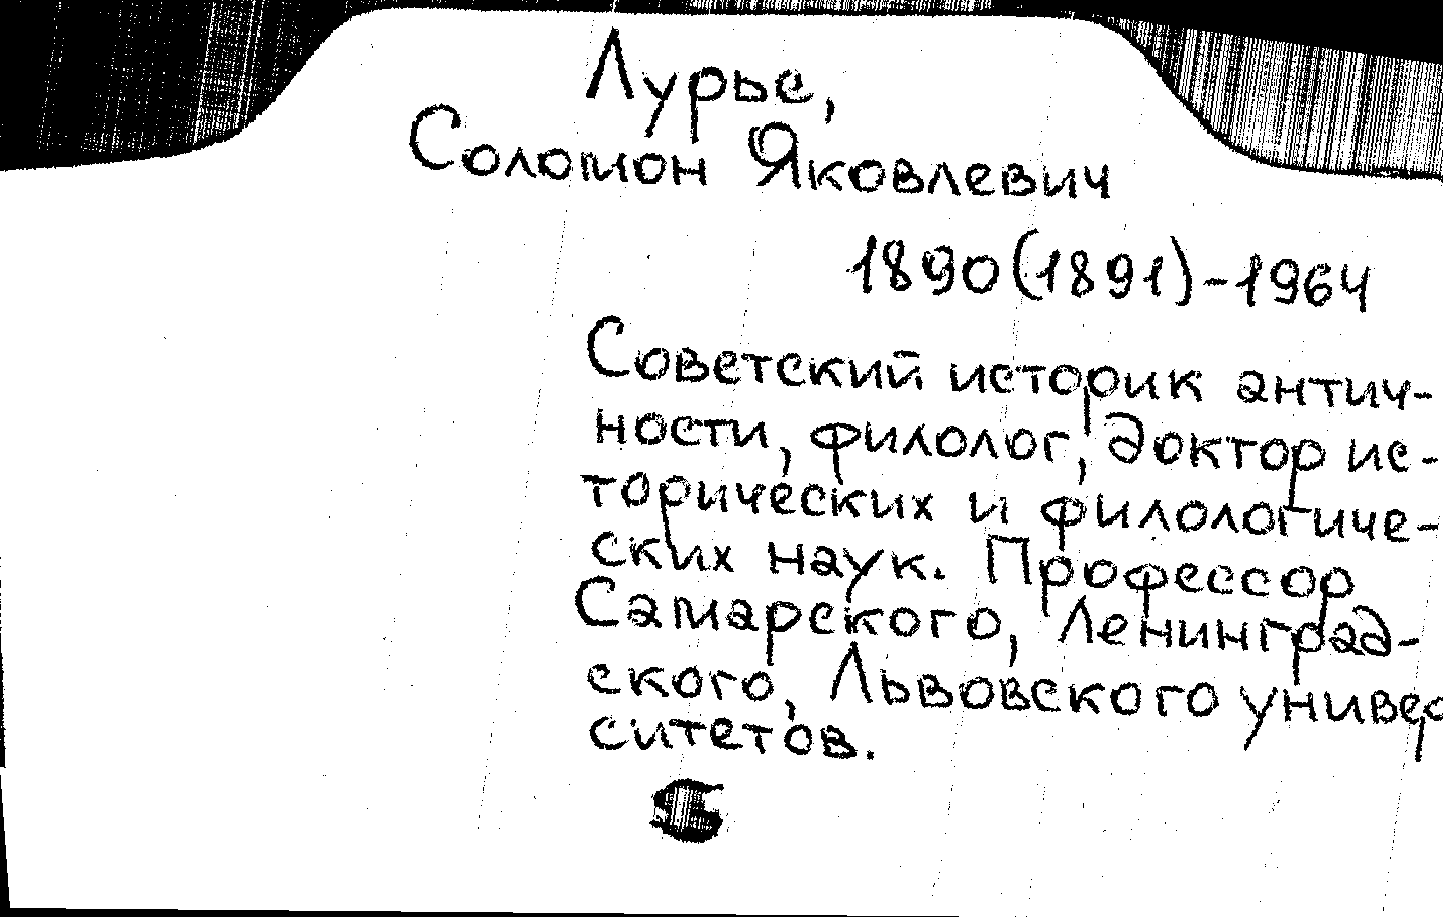 Лурье,
Соломон Яковлевич
1890(1891)-1964
Советский историк антич-
ности, филолог, доктор ис-
торических и филологиче-
ских наук. Профессор
Самарского, Ленинград-
ского, Львовского универ
ситетов.